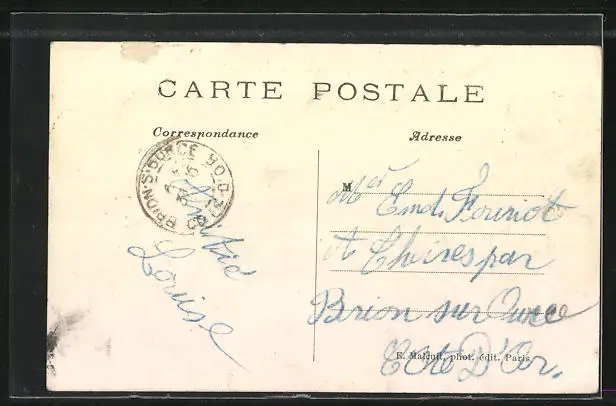 CARTE POSTALE
Correspondance
Adresse
BRION-S-OURCE
CÔTE-D'OR
Amitié
Louise
M
à
par
Brion sur Ource
Cote D'Or.
E. Maleuit, phot. édit. Paris